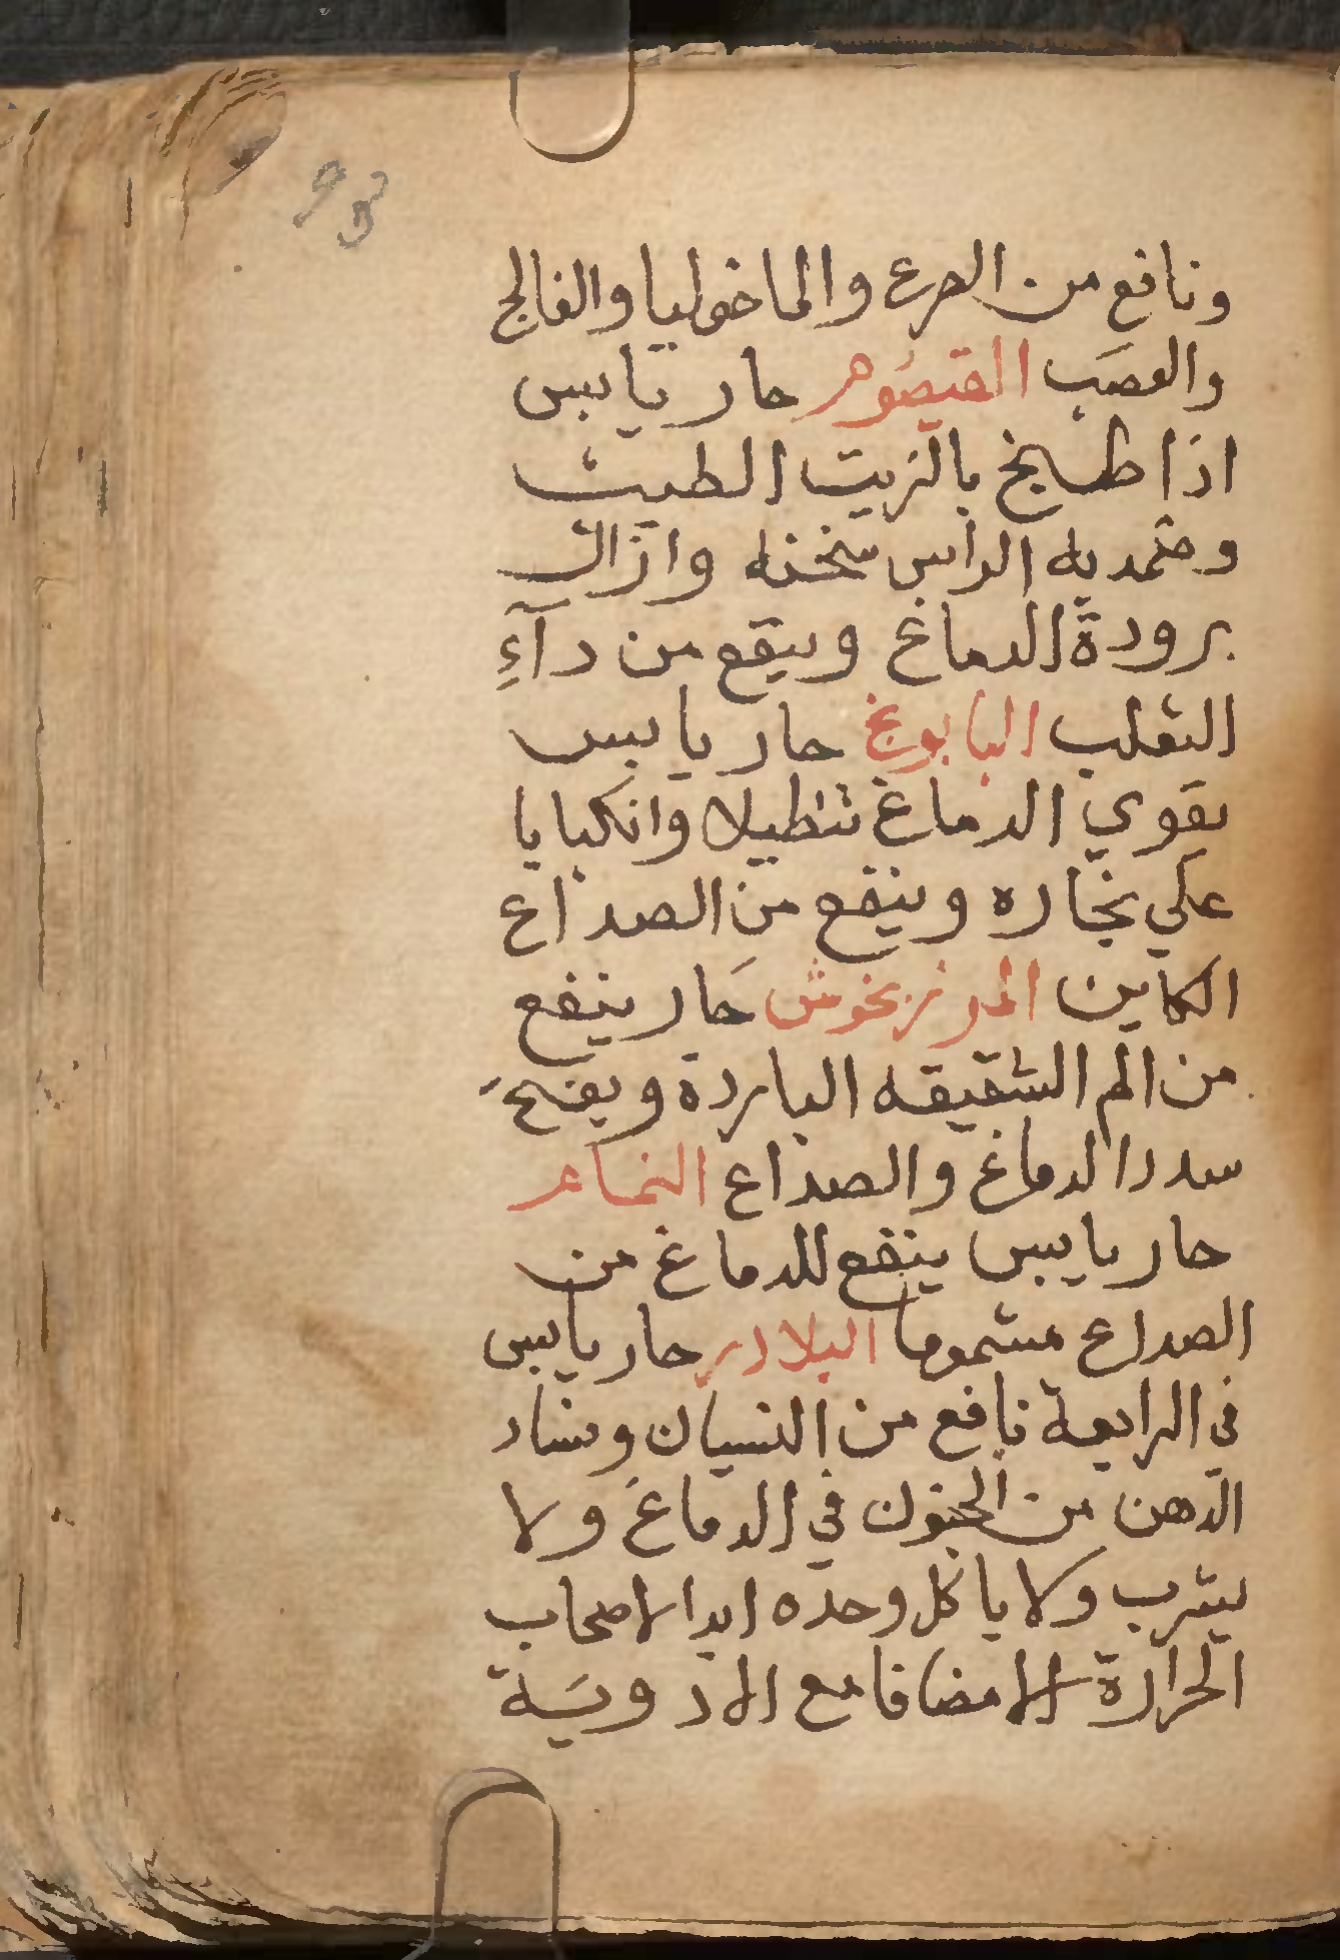 93
ونافع من الصرع والماخوليا والفالج
والعصَب القيصَوم حار يابس
اذا طبخ بالزيت الطيب
وضمد به الراس سخنه وازال
برودة الدماغ وينفع من دآءِ
الثعلب البابونج حار يابس
يقوي الدماغ تنطيلا وانكبابا
علي بخاره وينفع من الصداع
الكاين المرزنجوش حَار ينفع
من الم الشقيقه الباردة ويفتح
سدد الدماغ والصداع النمام
حار يابس ينفع للدماغ من
الصداع مشموما البلادر حار يابس
في الرابعة نافع من النسيان وفساد
الذهن من الجنون في الدماغ ولا
يشرب ولا ياكل وحده ابدا لاصحاب
الحرارة الا مضافا مع الادويَة